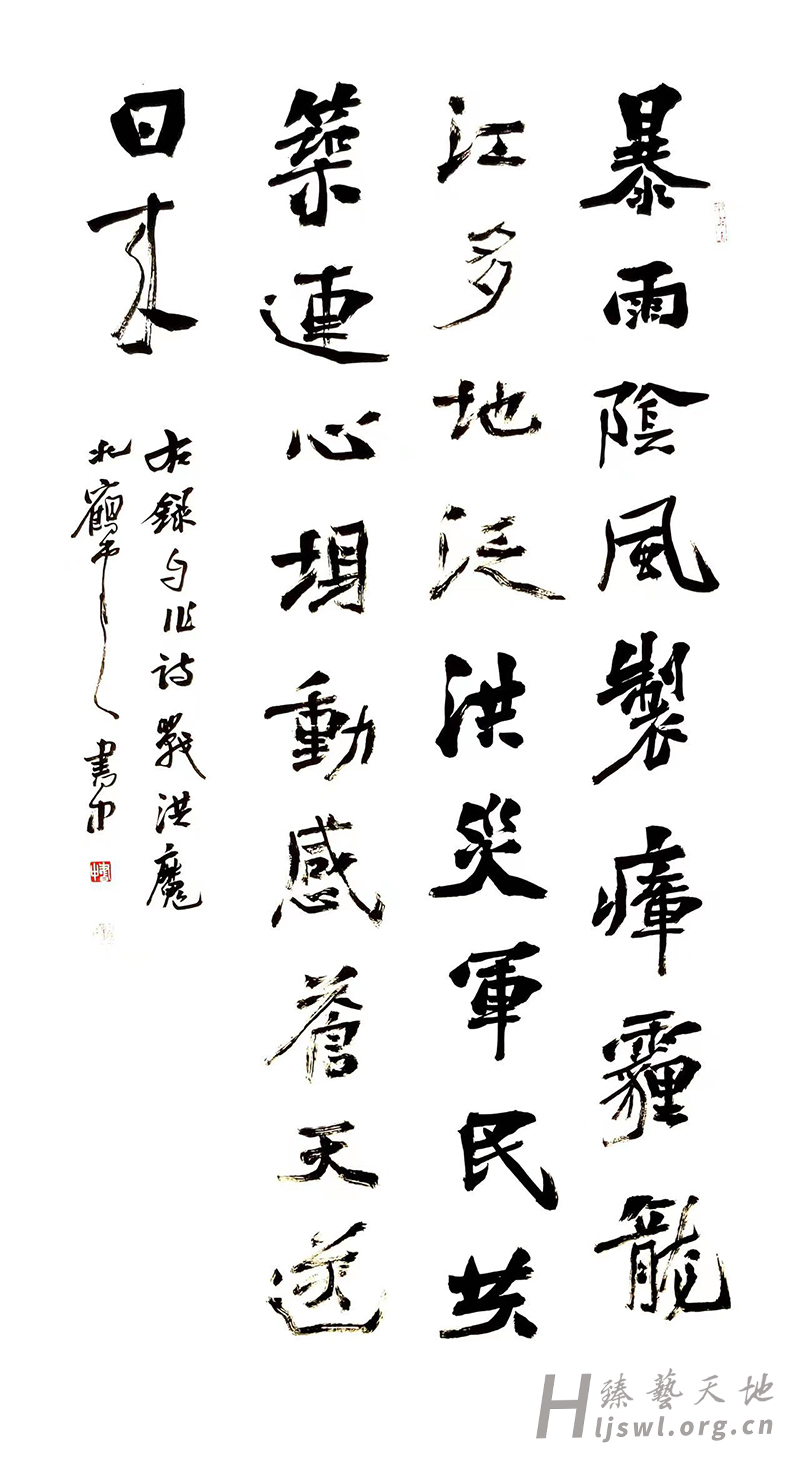 暴雨陰風製瘴霾龍
江多地泛洪災軍民共
築連心壩動感蒼天送
日来
右録自作詩戰洪魔
北鶴
書中
臻藝天地
Hljswl.org.cn